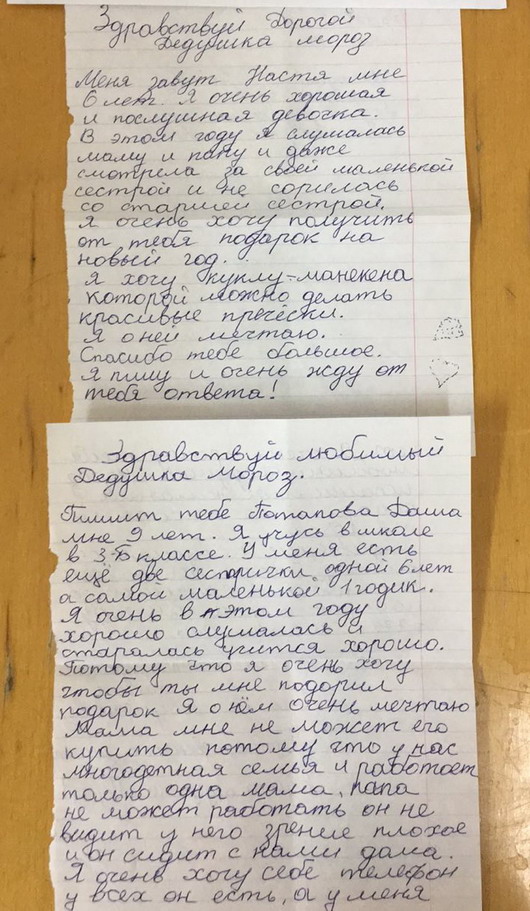 Здравствуй Дорогой
Дедушка мороз
Меня завут Настя мне
6 лет. Я очень хорошая
и послушная девочка.
В этом году я слушалась
маму и папу и даже
смотрела за своей маленькой
сестрой и не сорилась
со старшей сестрой.
Я очень хочу получить
от тебя подарок на
новый год.
Я хочу куклу-манекена
которой можно делать
красивые причёски.
Я о ней мечтаю.
Спасибо тебе большое.
Я пишу и очень жду от
тебя ответа!
Здравствуй любимый
Дедушка Мороз.
Пишит тебе Потапова Даша
мне 9 лет. Я учусь в школе
в 3-Б классе. У меня есть
ещё две сестрички одной 6 лет
а самой маленькой 1 годик.
Я очень в этом году
хорошо слушалась и
старалась учится хорошо.
Потому что я очень хочу
чтобы ты мне подорил
подарок Я о нём очень мечтаю
Мама мне не может его
купить потому что у нас
многодетная семья и работает
только одна мама, папа
не может работать он не
видит у него зрение плохое
и он сидит с нами дома.
Я очень хочу себе телефон
у всех он есть, а у меня